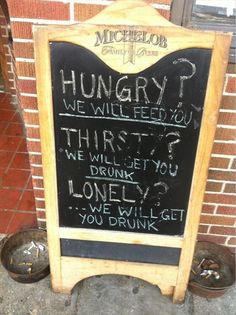 MICHELOB
FAMILY OF BEERS
HUNGRY?
WE WILL FEED YOU
THIRSTY?
WE WILL GET YOU
DRUNK
LONELY?
...WE WILL GET
YOU DRUNK